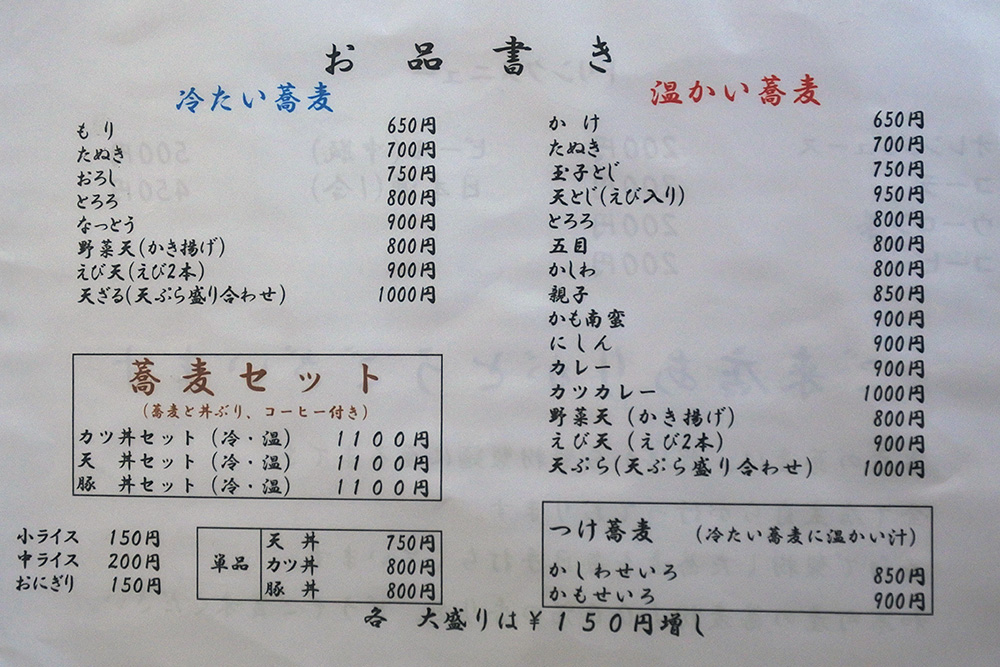 お品書き
冷たい蕎麦
もり 650円
たぬき 700円
おろし 750円
とろろ 800円
なっとう 900円
野菜天(かき揚げ) 800円
えび天(えび2本) 900円
天ざる(天ぷら盛り合わせ) 1000円
温かい蕎麦
かけ 650円
たぬき 700円
玉子とじ 750円
天とじ(えび入り) 950円
とろろ 800円
五目 800円
かしわ 800円
親子 850円
かも南蛮 900円
にしん 900円
カレー 900円
カツカレー 1000円
野菜天(かき揚げ) 800円
えび天(えび2本) 900円
天ぷら(天ぷら盛り合わせ) 1000円
蕎麦セット
(蕎麦と丼ぶり、コーヒー付き)
カツ丼セット(冷・温) 1100円
天 丼セット(冷・温) 1100円
豚 丼セット(冷・温) 1100円
小ライス 150円
中ライス 200円
おにぎり 150円
単品
天 丼 750円
カツ丼 800円
豚 丼 800円
つけ蕎麦 (冷たい蕎麦に温かい汁)
かしわせいろ 850円
かもせいろ 900円
各 大盛りは¥150円増し